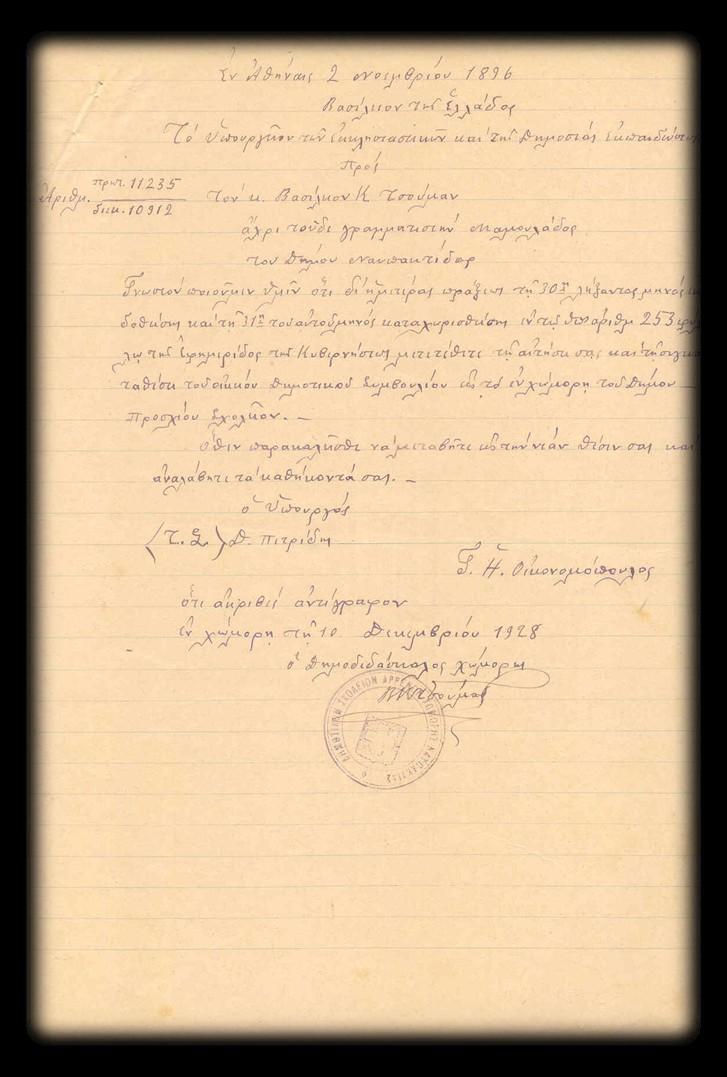 Ἐν Ἀθήναις 2 νοεμβρίου 1896
Βασίλειον τῆς Ἑλλάδος
Τὸ Ὑπουργεῖον τῶν Ἐκκλησιαστικῶν καὶ τῆς Δημοσίας Ἐκπαιδεύσεως
Πρὸς
Ἀριθμ. πρωτ. 11235
διεκ. 10912
τὸν κ. Βασίλειον Κ Τσούμαν
ἄχρι τοῦδε γραμματιστὴν Μαμουλάδος
τοῦ Δήμου Ναυπακτίδος
Γνωστὸν ποιοῦμεν ὑμῖν ὅτι δι' ἡμετέρας πράξεως τῇ 30ῃ λήξαντος μηνὸς
δοθείσης καὶ τῇ 31ῃ τοῦ αὐτοῦ μηνὸς καταχωρισθείσης ἐν τῷ ὑπ' ἀριθμ 253 φύλ
λῳ τῆς Ἐφημερίδος τῆς Κυβερνήσεως μετετέθητε τῇ αἰτήσει σας καὶ τῇ συγκα
ταθέσει τοῦ οἰκείου Δημοτικοῦ Συμβουλίου εἰς τὸ ἐν χώμορη τοῦ Δήμου
Προσχίου Σχολεῖον. —
Ὅθεν παρακαλεῖσθε νὰ μεταβῆτε εἰς τὴν νέαν θέσιν σας καὶ
ἀναλάβητε τὰ καθήκοντά σας. —
ὁ Ὑπουργός
(Τ. Σ.) Δ. Πετρίδης
Γ. Η. Οἰκονομόπουλος
ὅτι ἀκριβὲς ἀντίγραφον
ἐν χώμορη τῇ 10 Δεκεμβρίου 1928
ὁ Δημοδιδάσκαλος χώμορης
ΒΚΤσούμας
ΔΗΜΟΤΙΚΟΝ ΣΧΟΛΕΙΟΝ ΑΡΡΕΝΩΝ ΧΩΜΟΡΗΣ ΝΑΥΠΑΚΤΙΑΣ